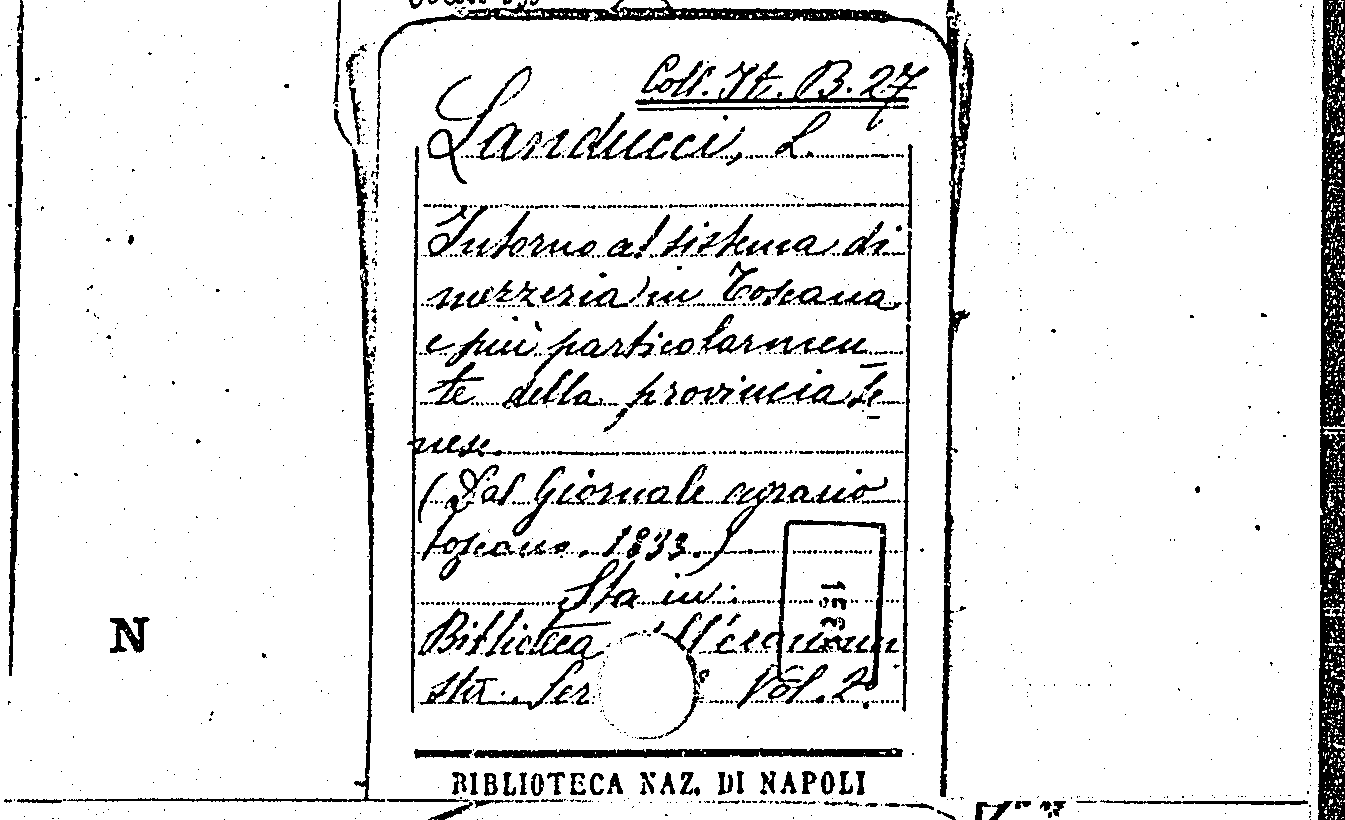 Coll. It. B. 27
Landucci, L.
Intorno al sistema di
mezzeria in Toscana
e più particolarmen_
te della provincia se_
nese.
(Dal Giornale agrario
toscano. 1833.)
Sta in:
Biblioteca dell'economi
sta. Ser Vol. 2.
N
BIBLIOTECA NAZ. DI NAPOLI